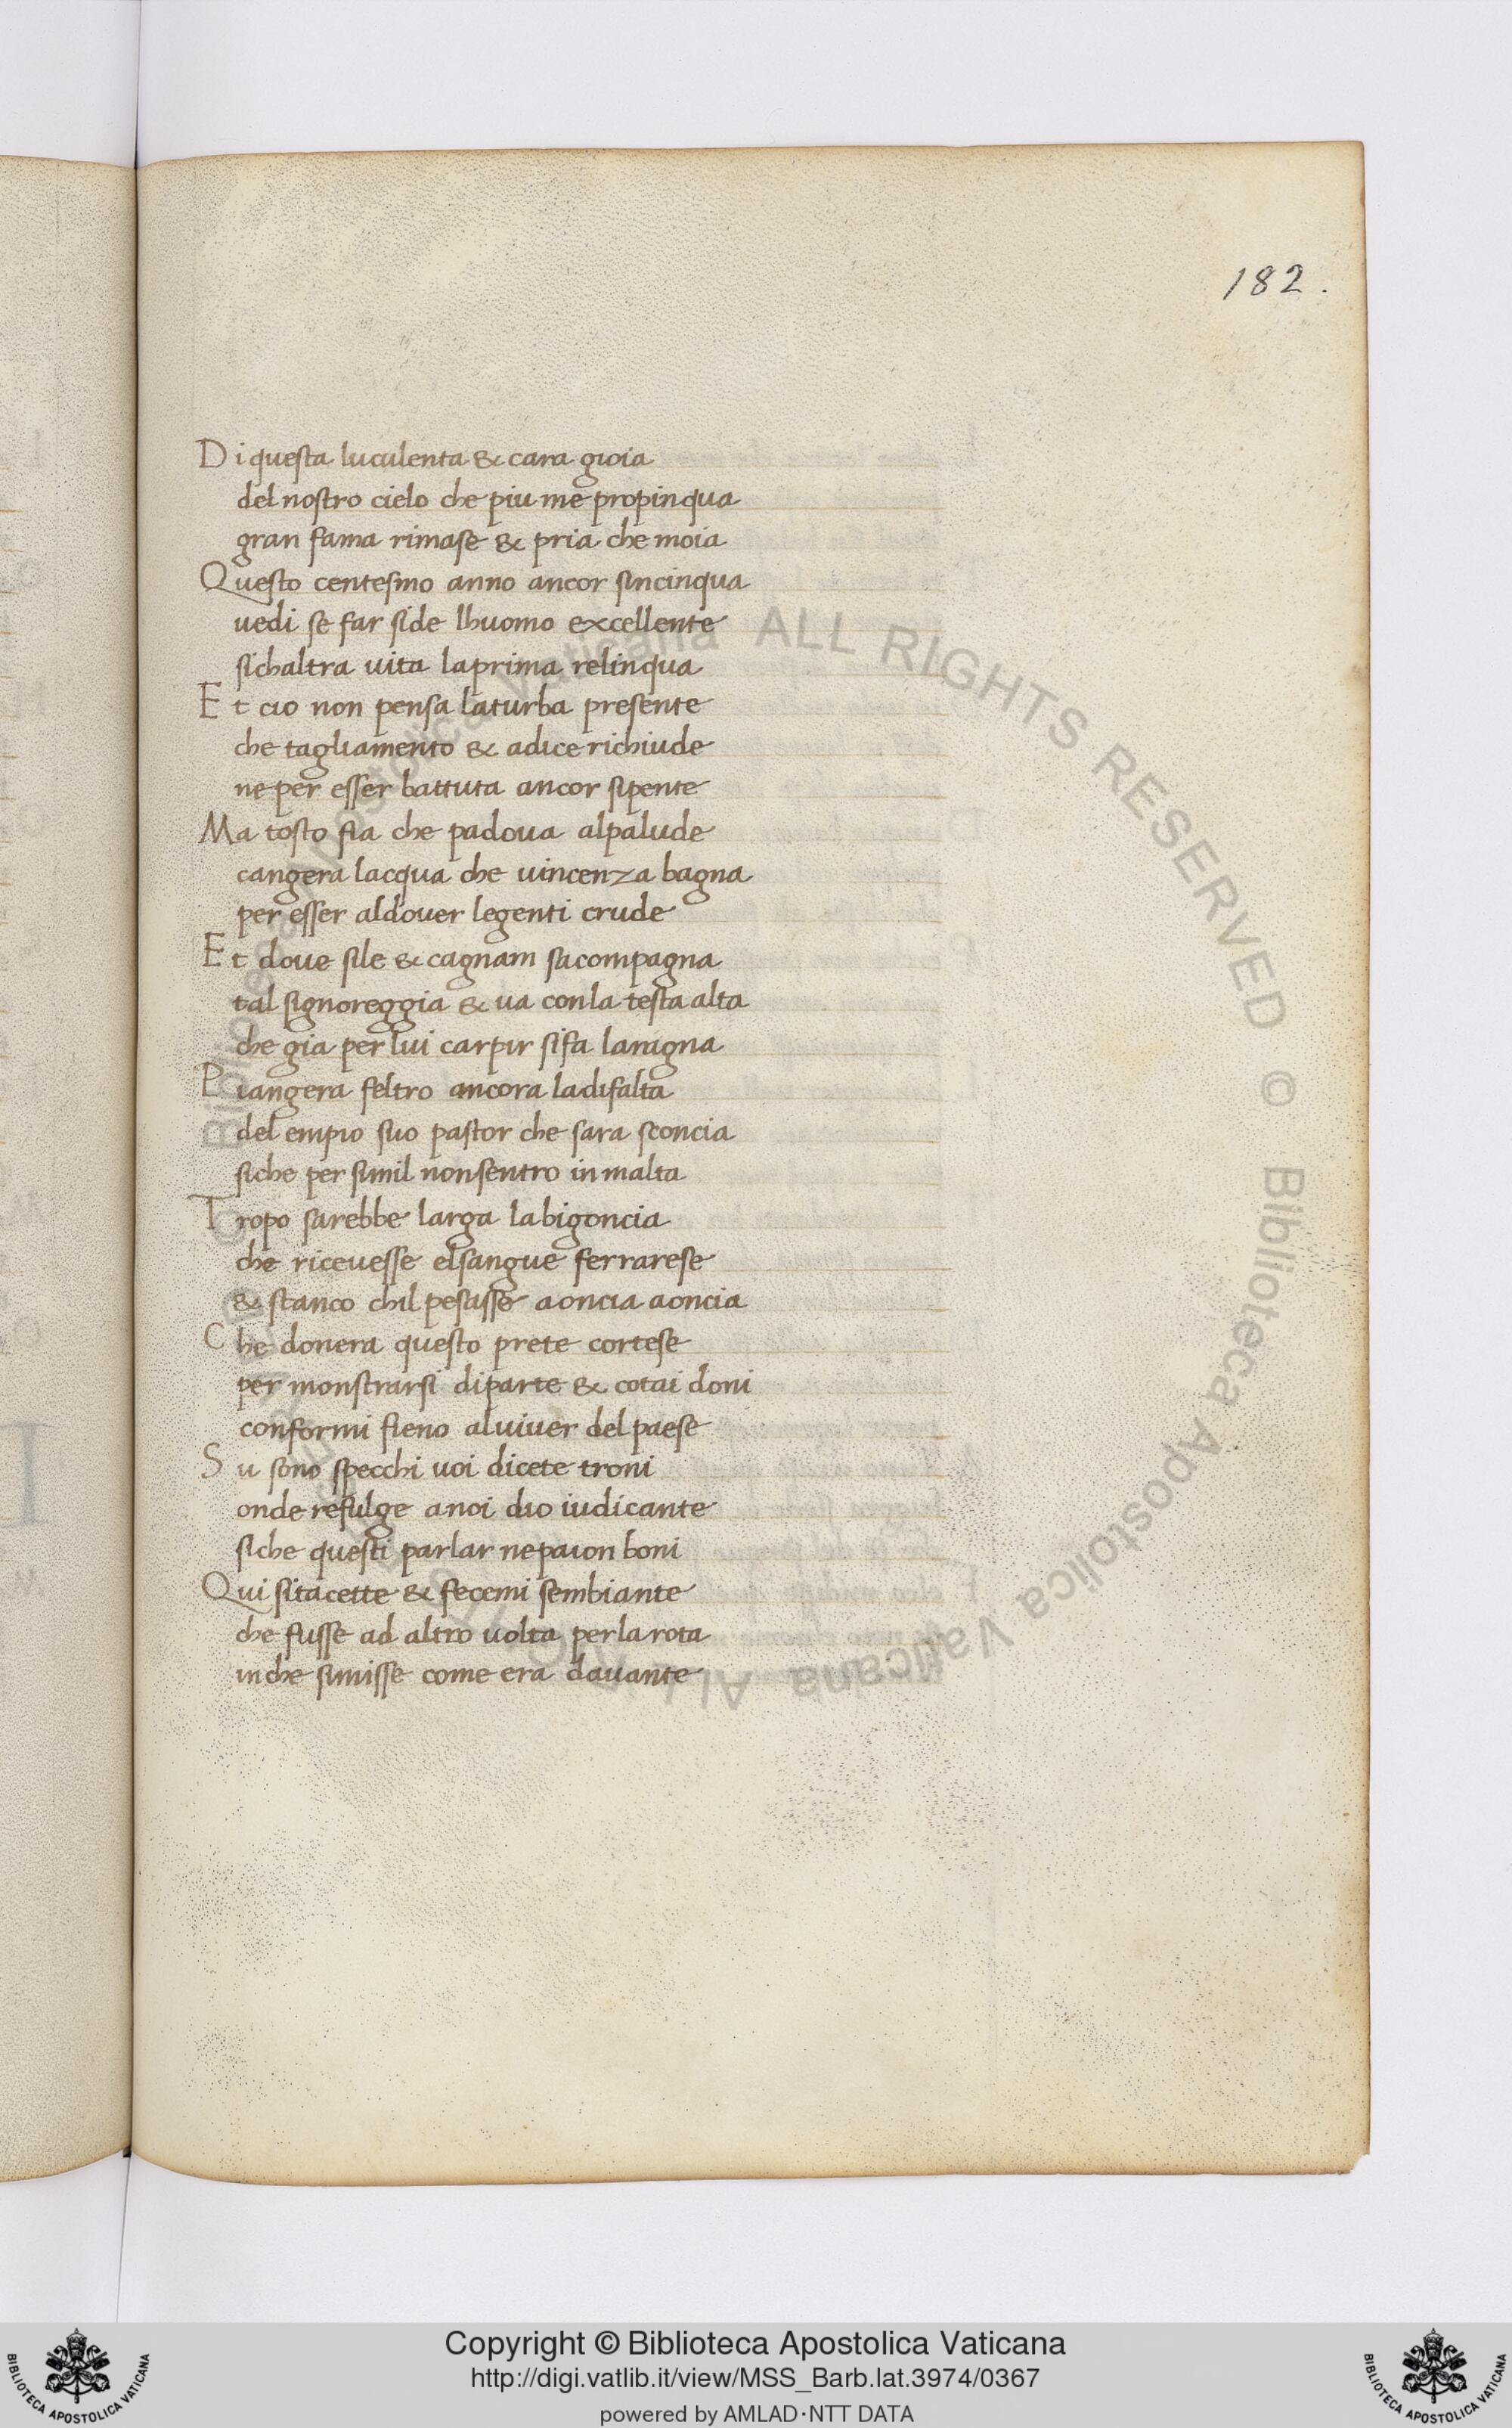 182.
Di questa luculenta & cara gioia
del nostro cielo che piu me propinqua
gran fama rimase & pria che moia
Questo centesmo anno ancor sincinqua
uedi se far side lhuomo excellente
sichaltra uita laprima relinqua
Et cio non pensa laturba presente
che tagliamento & adice richiude
ne per esser battuta ancor sipente
Ma tosto fia che padoua alpalude
cangera lacqua che uincenza bagna
per esser aldouer legenti crude
Et doue sile & cagnam sacompagna
tal signoreggia & ua conla testa alta
che gia per lui carpir sifa laragna
Piangera feltro ancora ladifalta
del empio suo pastor che sara sconcia
siche per simil nonsentro in malta
Tropo sarebbe larga labigoncia
che riceuesse elsangue ferrarese
& stanco chil pesasse aoncia aoncia
Che donera questo prete cortese
per monstrarsi diparte & cotai doni
conformi fieno aluiuer del paese
Su sono specchi uoi dicete troni
onde refulge anoi dio iudicante
siche questi parlar nepaion boni
Qui sitacette & fecemi sembiante
che fusse ad altro uolta perlarota
inche simisse come era dauante
© Biblioteca Apostolica Vaticana ALL RIGHTS RESERVED
Copyright © Biblioteca Apostolica Vaticana
http://digi.vatlib.it/view/MSS_Barb.lat.3974/0367
powered by AMLAD·NTT DATA
BIBLIOTECA APOSTOLICA VATICANA
BIBLIOTECA APOSTOLICA VATICANA